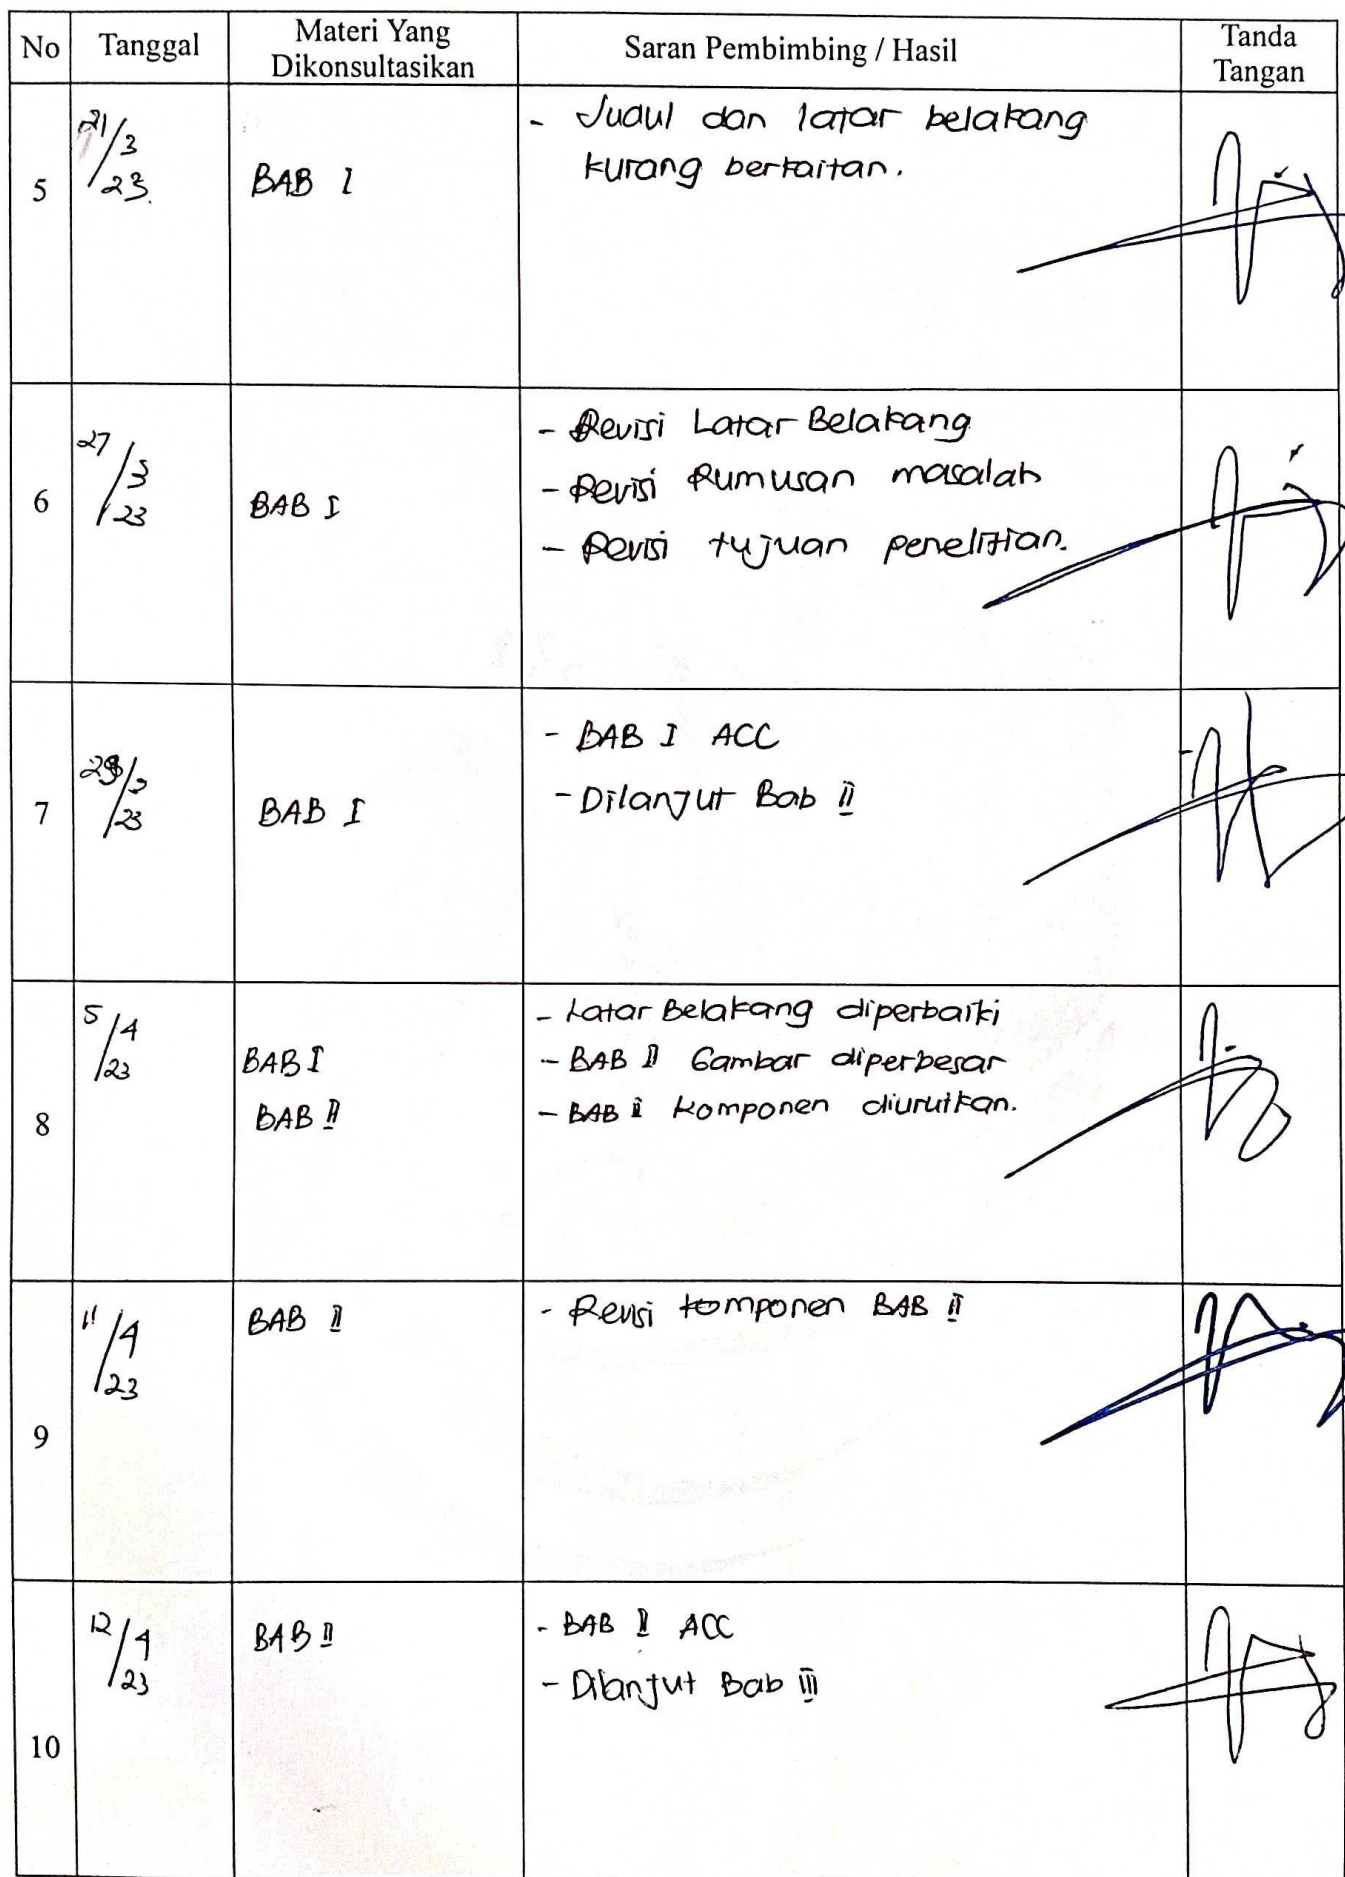 No Tanggal Materi Yang Dikonsultasikan Saran Pembimbing / Hasil Tanda Tangan
5 21/3/23 BAB I - Judul dan latar belakang
kurang berkaitan.
6 27/3/23 BAB I - Revisi Latar Belakang
- Revisi Rumusan masalah
- Revisi tujuan penelitian.
7 /3/23 BAB I - BAB I ACC
- Dilanjut Bab II
8 5/4/23 BAB I - Latar Belakang diperbaiki
BAB II - BAB II Gambar diperbesar
- BAB II Komponen diurutkan.
9 11/4/23 BAB II - Revisi komponen BAB II
10 12/4/23 BAB II - BAB II ACC
- Dilanjut Bab III